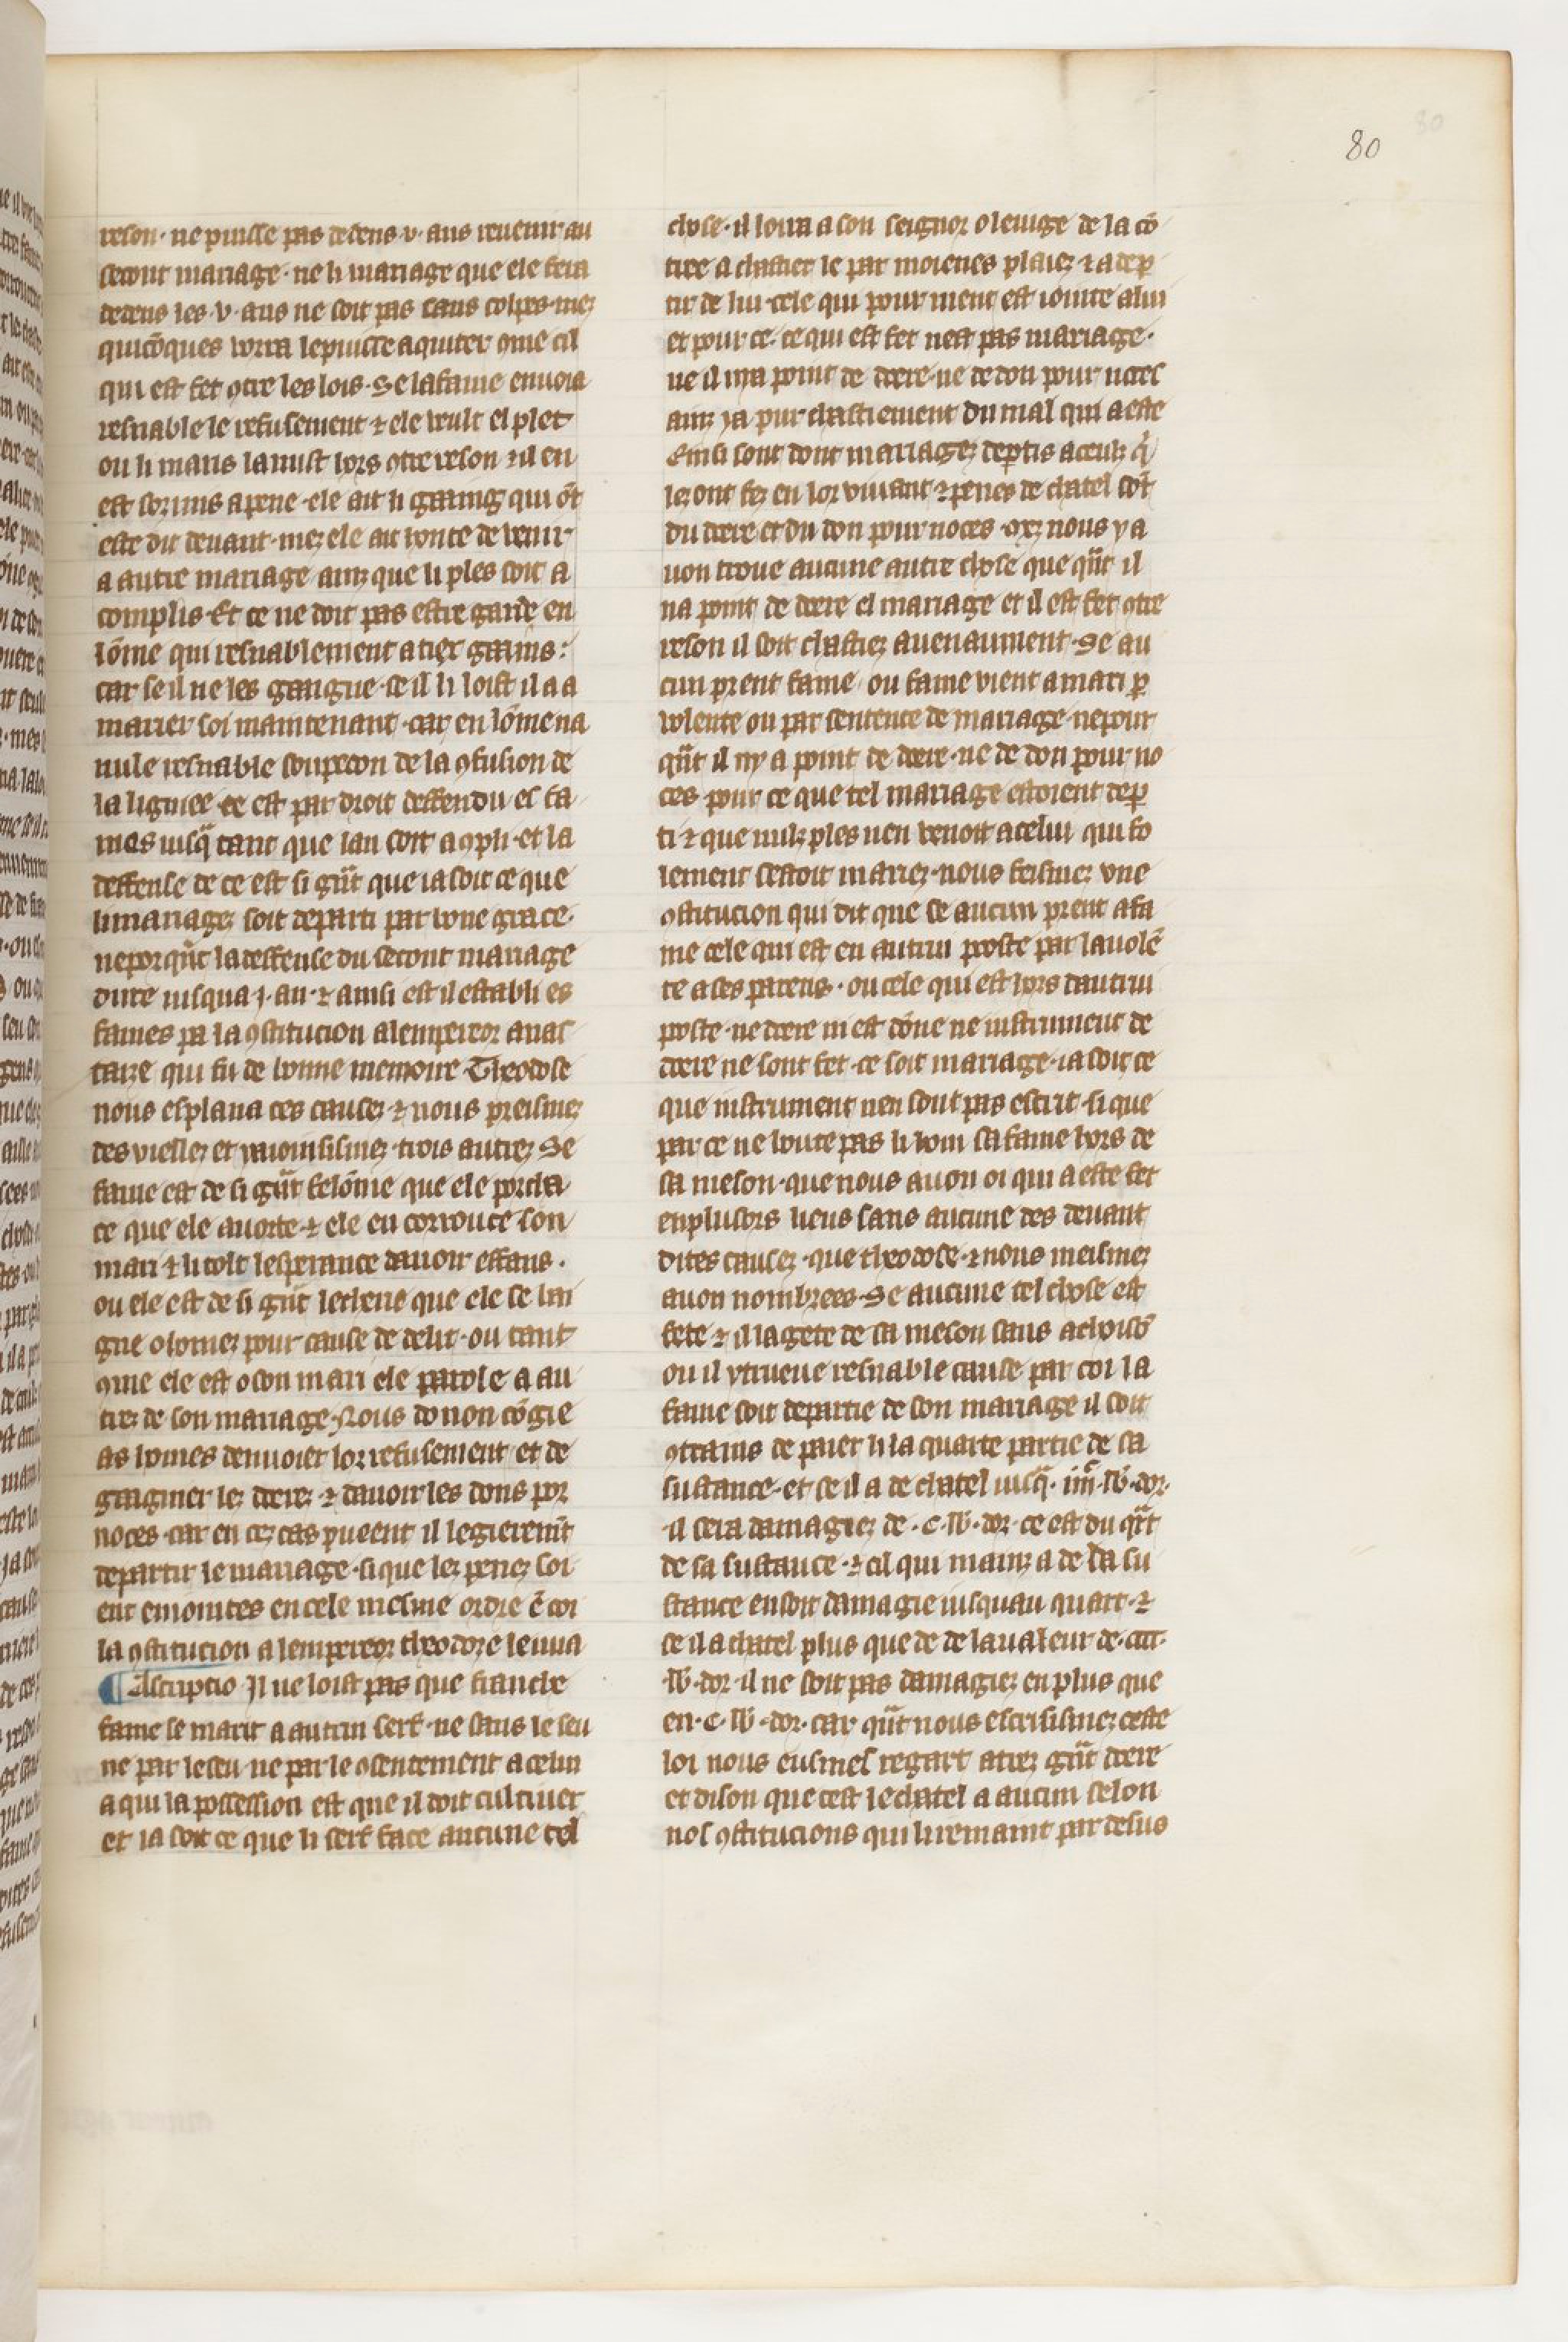 80
reson· ne puisse pas dedens ·v· ans reuenir au
secont mariage· ne li mariage que ele fera
dedens les ·v· ans ne soit pas sans colpes· mez
quicōques vorra le puisse aquiter ꝯme cil
qui est fet ꝯtre les lois· Se la fame enuoia
resnable le refusement ⁊ ele veult el plet
ou li maris la mist hors ꝯtre reson ⁊ il en
est sormis a pene· ele ait li gaaing qui ōt
este dit deuant· mez ele ait honte de venir
a autre mariage ainz que li ples soit a
complis· Et ce ne doit pas estre garde en
lōme qui resnablement a tiex gaains:
car se il ne les gaaigne· se il li loist il a a
marier soi maintenant· car en lōme na
nule resnable soupecon de la ꝯfusion de
la lignee· ce est par droit deffendu es fa
mes iusq̄ tant que lan soit aꝯpli· et la
deffense de ce est si gūt que ia soit ce que
li mariagez soit departi par bone grace·
neporqūt la deffense du secont mariage
dure iusqua j· an· ⁊ ainsi est il establi es
fames pa la ꝯstitucion a lempereor anas
taize qui fu de bonne memoire Theodose
nous esplana ces causez ⁊ nous preismez
des viellez et y aioinsismez trois autrez Se
fame est de si gūt felōnie que ele porcha
ce que ele auorte· ⁊ ele en corrouce son
mari ⁊ li tolt lesperance dauoir effans·
ou ele est de si gūt lecherie que ele se bai
gne o homez pour cause de delit· ou tant
ꝯme ele est o son mari ele parole a au
trez de son mariage· Nous donon cōgie
as homes denuoier lor refusement et de
gaaignier lez doerez ⁊ dauoir les dons por
noces· car en cez cas pueent il legierem̄t
departir le mariage· si que lez penez soi
ent emointes en cele mesme ordre ē coi
la ꝯstitucion a lempereor theodoze le mua
¶ Ascriptio Il ne loist pas que franche
fame se marit a autrui serf· ne sans le seu
ne par le seu· ne par le ꝯsentement a celui
a qui la possession est que il doit cultiuer
et ia soit ce que li serf face aucune tel
chose· il loira a son seignor o le iuige de la cō
tree a chastier le par moienes plaiez ⁊ a dep̱
tir de lui cele qui pour nient est iointe a lui
et pour ce· ce qui est fet nest pas mariage·
ne il ni a point de doere· ne de don pour noces
ainz ya pur chastiement du mal qui a este
Einsi sont dont mariagez dep̱tis a ceulz q̄
lez ont fez en lor viuant ⁊ penes de chatel sōt
du doere et du don pour noces· mez nous y a
uon troue aucune autre chose que qūt il
na point de doere el mariage et il est fet ꝯtre
reson il soit chastiez auenaument· Se au
cun prent fame· ou fame vient a mari p̱
volente ou par sentence de mariage· nepour
qūt il ny a point de doere· ne de don pour no
ces· pour ce que tel mariage estoient dep̱
ti ⁊ que nulz ples nen venoit a celui qui fo
lement sestoit mariez· nous feismez vne
ꝯstitucion qui dit que se aucun prent a fa
me cele qui est en autrui poste par la volē
te a ses parens· ou cele qui est hors dautrui
poste· ne doere ni est dōne ne instrument de
doere ne sont fet· ce soit mariage· ia soit ce
que instrument nen sont pas escrit· si que
par ce ne boute pas li hom sa fame hors de
sa meson· que nous auon oi qui a este fet
en plusors lieus sans aucune des deuant
dites causez· que theodose· ⁊ nous meismez
auon nombrees· Se aucune tel chose est
fete· ⁊ il la gete de sa meson sans achoisō
ou il ytrueue resnable cause par coi la
fame soit departie de son mariage il soit
ꝯtrains de paier li la quarte partie de sa
sustance· et se il a de chatel iusq̄· iiiic· lb̄· dor·
il sera damagiez de ·c· lb̄· dor· ce est du qūt
de sa sustance· ⁊ cil qui mainz a de sa su
stance en soit damagie iusquau quart· ⁊
se il a chatel plus que de de la valeur de· cccc·
lb̄· dor· il ne soit pas damagiez en plus que
en· c· lb̄· dor· car qūt nous escrisismez ceste
loi nous eusmes regart a tiez gūt doere
et dison que cest le chatel a aucun selon
nos ꝯstitucions qui li remaint par desus